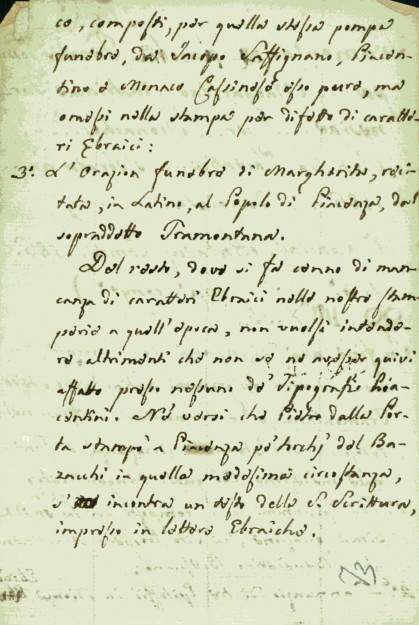 co, composti, per quella stessa pompa
funebre, da Jacopo Laffignano, Piacen-
tino e Monaco Cassinese esso pure, ma
omessi nella stampa per difetto di caratte-
ri Ebraici:
3°. L'Orazion funebre di Margherita, reci-
tata, in Latino, al Popolo di Piacenza, dal
sopraddetto Tramontana.
Del resto, dove si fa cenno di man-
canza di caratteri Ebraici nelle nostre stam-
perie a quell'epoca, non vuolsi intende-
re altrimenti che non se ne avesser quivi
affatto presso nessuno de' Tipografi Pia-
centini. Ne' versi che Pietro dalla Por-
ta stampò a Piacenza pe' torchj del Ba-
zacchi in quella medesima circostanza,
s' incontra un testo della S. Scrittura,
impresso in lettere Ebraiche.
73